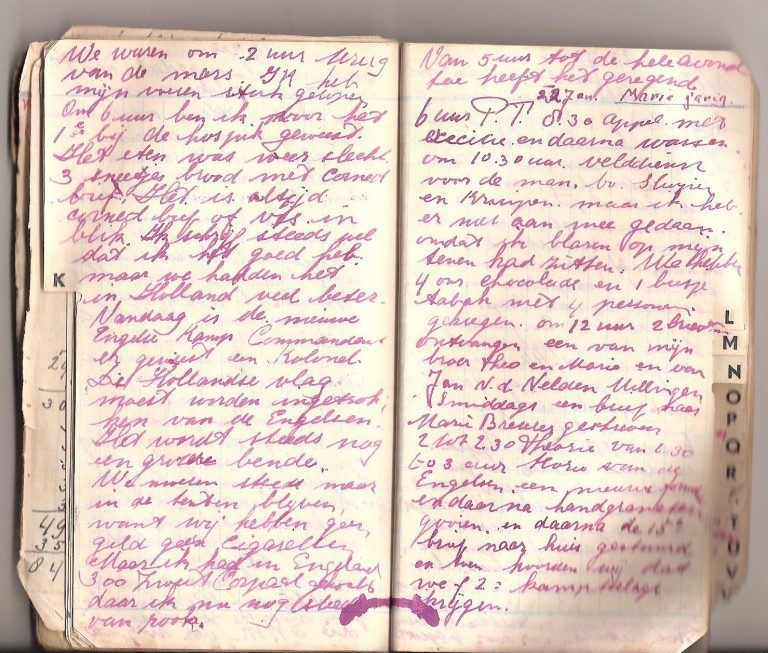 We waren om 2 uur terug
van de mars. Ik heb
mijn voeten stuk gelopen
Om 6 uur ben ik voor het
1e bij de hospik geweest.
Het eten was weer slecht.
3 sneetjes brood met corned
beef. Het is altijd
corned beef of vis in
blik. Ik schrijf steeds wel
dat ik het goed heb
maar we hadden het
in Holland veel beter.
Vandaag is de nieuwe
Engelse Kamp Commandant
er geweest een Kolonel.
De Hollandse vlag
moest worden ingetrok
ken van de Engelsen.
Het wordt steeds nog
een grotere bende.
We moeten steeds maar
in de tenten blijven,
want wij hebben geen
geld geen cigaretten
Maar ik had in Engeland
300 gekocht
daar ik nu nog steeds
van rook.
K
29
30
49
35
84
Van 5 uur tot de hele avond
toe heeft het geregend.
22 Jan. Marie jarig.
6 uur P.T. 8.30 appel met
excecitie en daarna wassen
om 10.30 uur velddienst
voor de man. bv. Sluipen
en Kruipen. maar ik heb
er niet aan mee gedaan.
omdat ik blaren op mijn
tenen had zitten. We hebben
4 ons chocolade en 1 busje
tabak met 4 personen
gekregen. om 12 uur 2 brieven
ontvangen een van mijn
broer Theo en Marie en van
Jan v.d. Velden Millingen
Smiddags een brief naar
Marie gestuurd
2 tot 2.30 Theorie van 2.30
tot 3 uur van de
Engelsen een nieuwe
en daarna handgranaten
gooien. en daarna de 15e
brief naar huis gestuurd
en toen hoorden wij dat
we f 2 = kamptoelage
krijgen.
L
M
N
O
P
Q
R
S
T
U
V